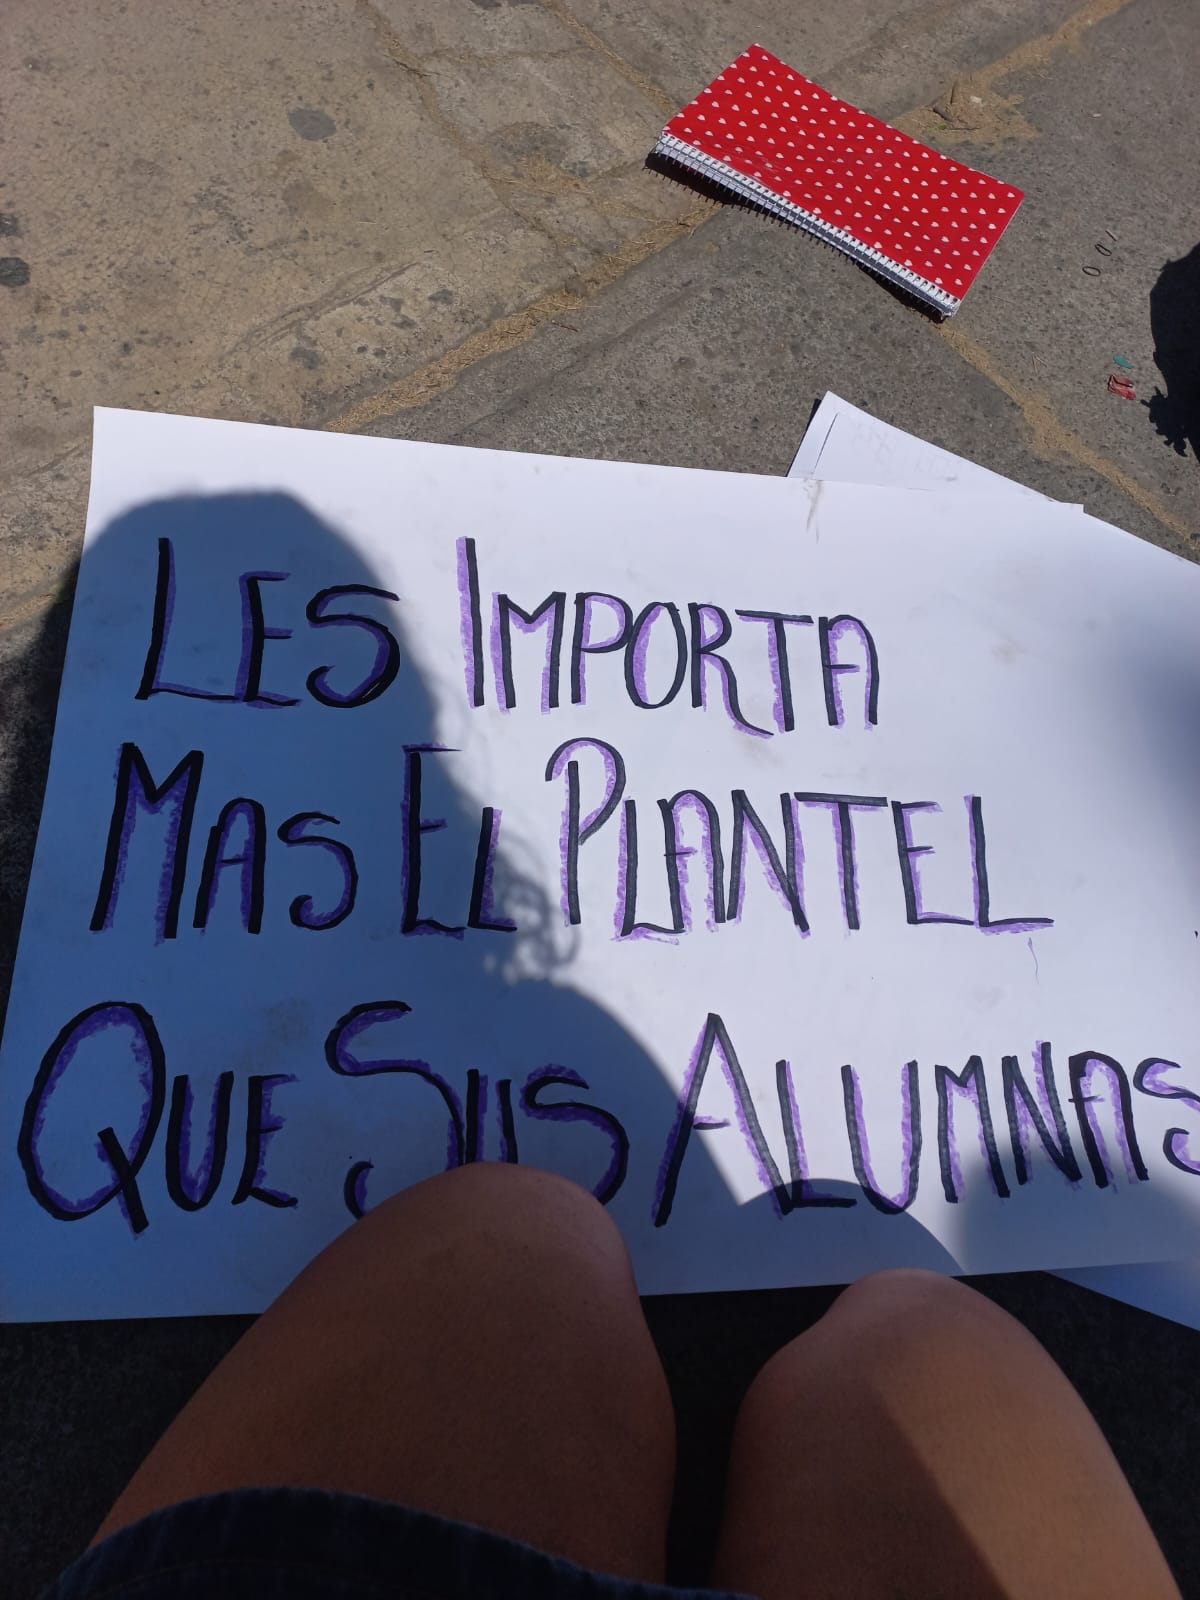 LES IMPORTA
MAS EL PLANTEL
QUE SUS ALUMNAS